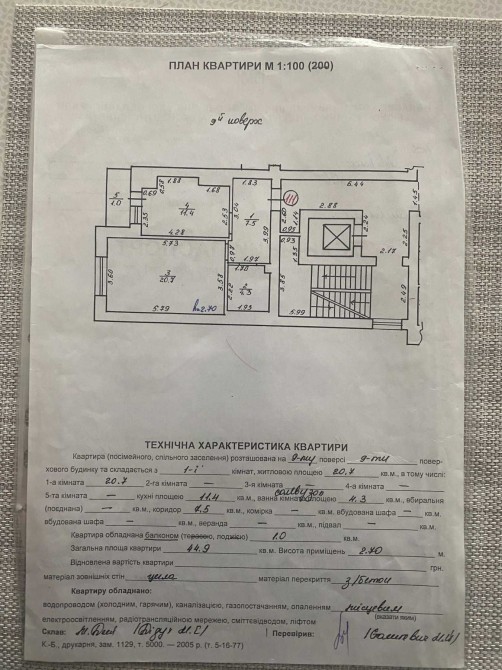 ПЛАН КВАРТИРИ М 1:100 (200)
9й поверх
5
1.0
0.69
0.58
1.88
1.68
4
11.4
2.35
2.53
4.28
1.83
3.04
1
7.5
3.99
0.97
1.97
5.73
3.60
3
20.7
3.58
5.79
h=2.70
1.70
2
4.3
2.22
1.93
111
6.44
2.88
2.60
2.14
0.95
0.93
2.24
1.45
2.25
2.17
3.85
5.99
2.49
ТЕХНІЧНА ХАРАКТЕРИСТИКА КВАРТИРИ
Квартира (посімейного, спільного заселення) розташована на 9-му поверсі 9-ти повер-
хового будинку та складається з 1-ї кімнат, житловою площею 20.7 кв.м., в тому числі:
1-а кімната 20.7 2-га кімната — 3-я кімната — 4-а кімната —
5-та кімната — кухні площею 11.4 кв.м., ванна кімната площею санвузол 4.3 кв.м., вбиральня
(поєднана) — кв.м., коридор 7.5 кв.м., комірка — кв.м. вбудована шафа — кв.м.
вбудована шафа — кв.м., веранда — кв.м., підвал — кв.м.
Квартира обладнана балконом (терасою, лоджією) 1.0 кв.м.
Загальна площа квартири 44.9 кв.м. Висота приміщень 2.70 м.
Відновлена вартість квартири грн.
матеріал зовнішніх стін цегла матеріал перекриття з/бетон
Квартиру обладнано:
водопроводом (холодним, гарячим), каналізацією, газопостачанням, опаленням місцевим
(вказати яким)
електроосвітленням, радіотрансляційною мережею, сміттєвідводом, ліфтом
Склав: Перевірив:
К.-Б., друкарня, зам. 1129, т. 5000. — 2005 р. (т. 5-16-77)